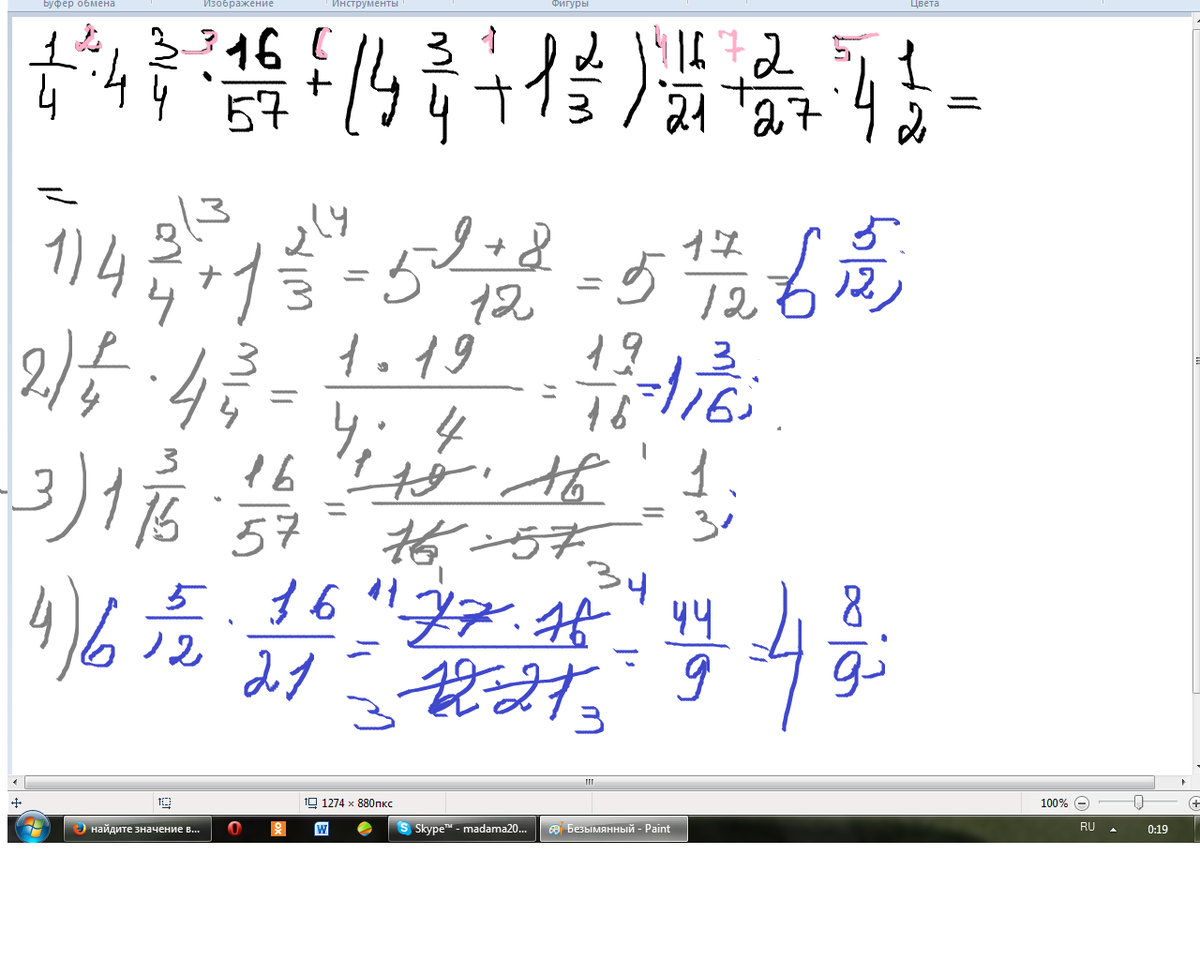 Буфер обмена Изображение Инструменты Фигуры Цвета
2 3 6 1 4 7 5
1/4 · 4 3/4 · 16/57 + (4 3/4 + 1 2/3) · 16/21 + 2/27 · 4 1/2 =
=
1) 4 3/4 \3 + 1 2/3 \4 = 5 9+8/12 = 5 17/12 = 6 5/12;
2) 1/4 · 4 3/4 = 1·19/4·4 = 19/16 = 1 3/16;
3) 1 3/16 · 16/57 = 1 19 · 16 1/16 1 · 57 3 = 1/3;
4) 6 5/12 · 16/21 = 11 77 · 16 4/3 12 · 21 3 = 44/9 = 4 8/9;
1274 × 880пкс 100%
найдите значение в... W Skype™ - madama20... Безымянный - Paint RU 0:19